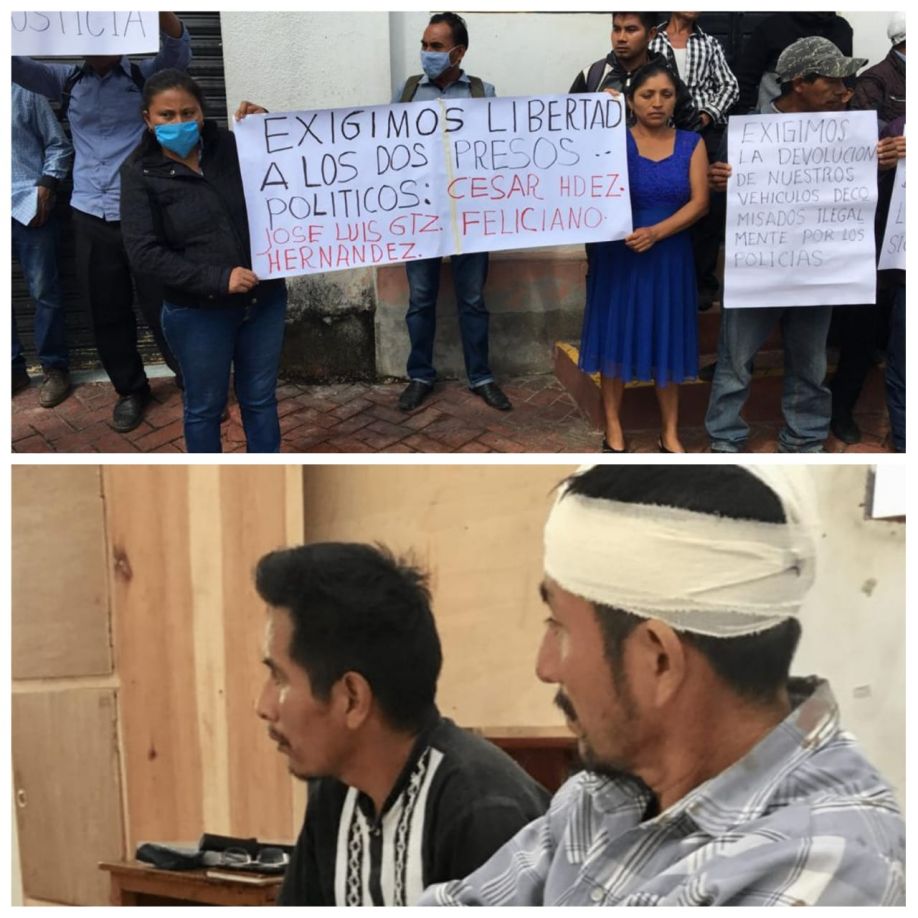 USTICIA
EXIGIMOS LIBERTAD
A LOS DOS PRESOS --
POLITICOS: CESAR HDEZ.
JOSE LUIS GTZ. FELICIANO.
HERNANDEZ.
EXIGIMOS
LA DEVOLUCION
DE NUESTROS
VEHICULOS DECO
MISADOS ILEGAL
MENTE POR LOS
POLICIAS